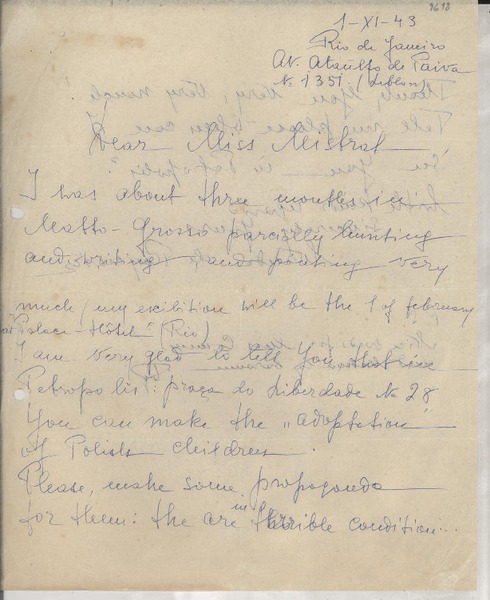 9618
1-XI-43
Rio de Janeiro
Av. Ataulfo de Paiva
N. 1351 (Leblon)
Dear Miss Mistral
I was about three months in
Matto-Grosso parcially hunting
and writing and painting very
much (my exibition will be the 1 of february
at "Palace-Hôtel" (Rio)
I am very glad to tell you that in
Petropolis: praça la Liberdade N 28
You can make the "adoptation"
of Polish children.
Please, make some propaganda
for them: the are in terrible condition...